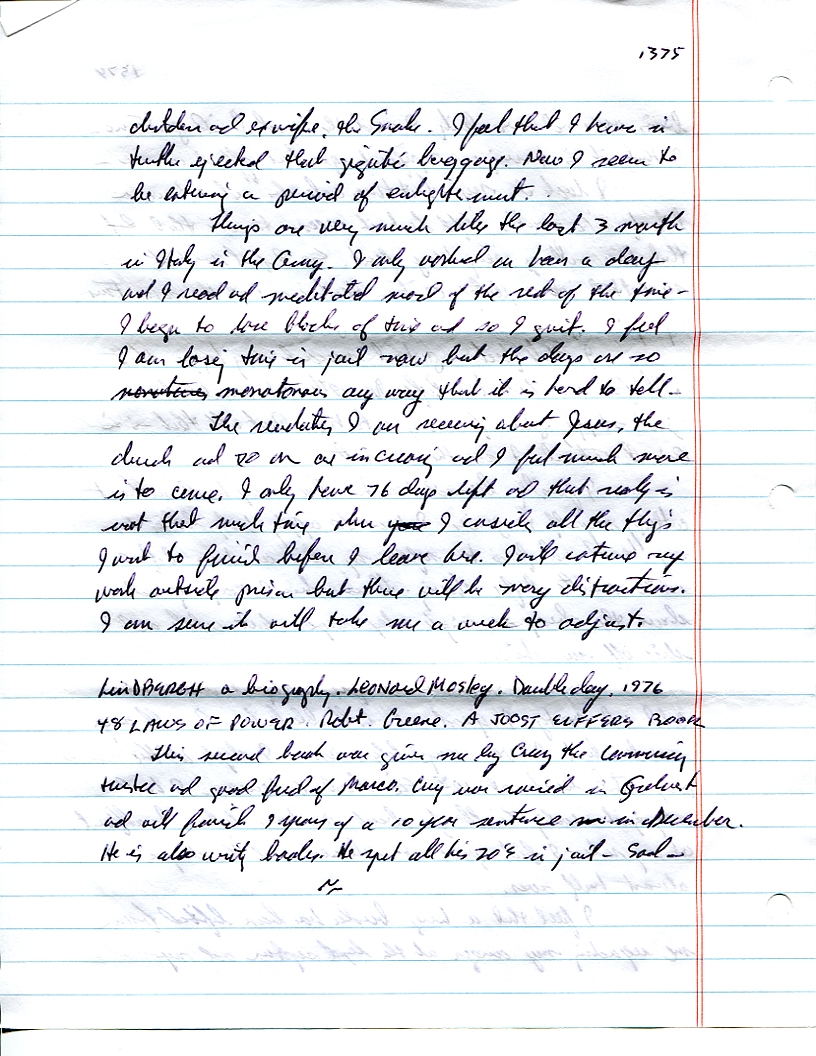 1375
children ad exwife, the Snake. I feel that I have in
truth ejected that gigantic baggage. Now I seem to
be entering a period of enlightenment.
Things are very much like the last 3 month
in Italy in the Army. I only worked an hour a day
and I read ad meditated most of the rest of the time-
I began to lose blocks of time ad so I quit. I feel
I am losing time in jail now but the days are so
monotonous any way that it is hard to tell-
The revelations I am receiving about Jesus, the
church ad so on are increasing ad I feel much more
is to come. I only have 76 days left ad that really is
not that much time when I consider all the things
I want to finish before I leave here. I will continue my
work outside prison but there will be many distractions.
I am sure it will take me a week to adjust.
LINDBERGH a biography. LEONARD Mosley. Doubleday, 1976
48 LAWS OF POWER. Robt. Greene. A JOOST ELFFERS BOOK
This second book was given me by the
trustee ad good friend of Marco. was raised in
ad will finish 9 years of a 10 year sentence in December.
He is also writing books. He spent all his 20's in jail - Sad-